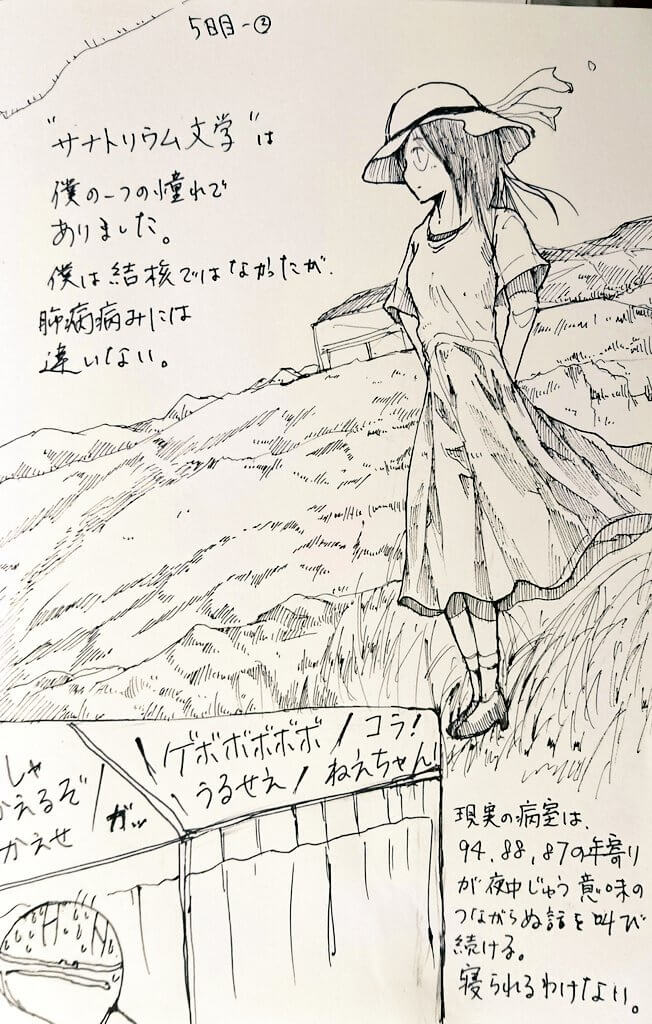 5日目-②
"サナトリウム文学"は
僕の一つの憧れで
ありました。
僕は結核ではなかったが、
肺病病みには
違いない。
ゲボボボボボ
うるせえ
コラ!
ねえちゃん!
しゃ
かえるぞ
かえせ
ガッ
現実の病室は、
94,88,87の年寄り
が夜中じゅう意味の
つながらぬ話を叫び
続ける。
寝られるわけない。